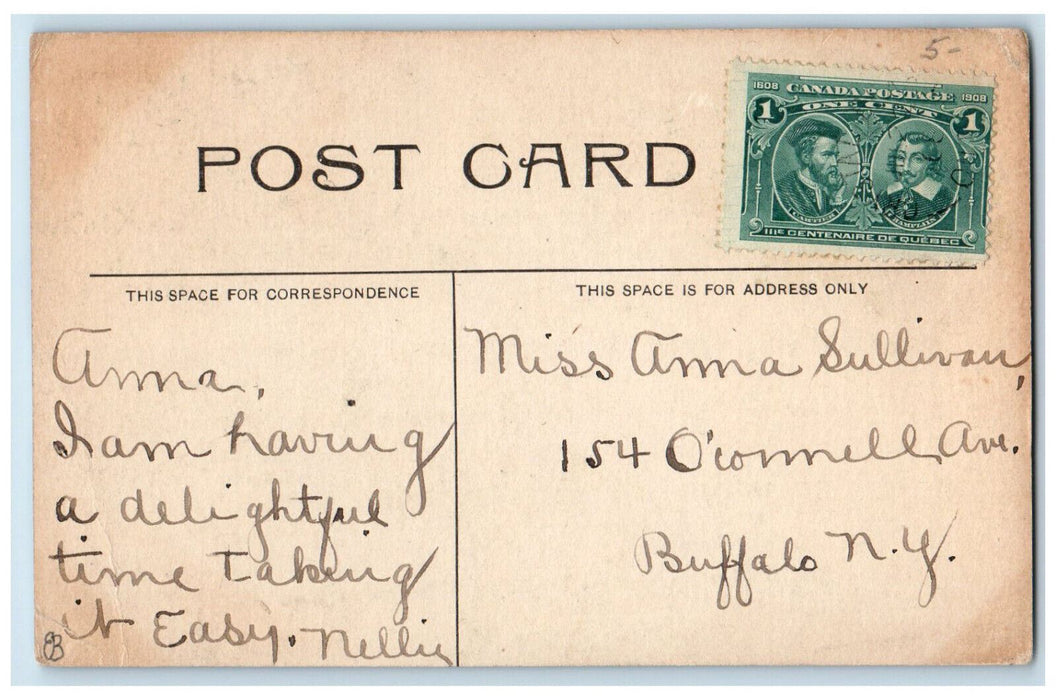 5-
1608 CANADA POSTAGE 1908
ONE CENT
1 1
CARTIER CHAMPLAIN
IIIe CENTENAIRE DE QUÉBEC
POST CARD
THIS SPACE FOR CORRESPONDENCE
THIS SPACE IS FOR ADDRESS ONLY
Anna,
I am having
a delightful
time Taking
it Easy. Nellie
Miss Anna Sullivan,
154 O'connell Ave.
Buffalo N.Y.
EB